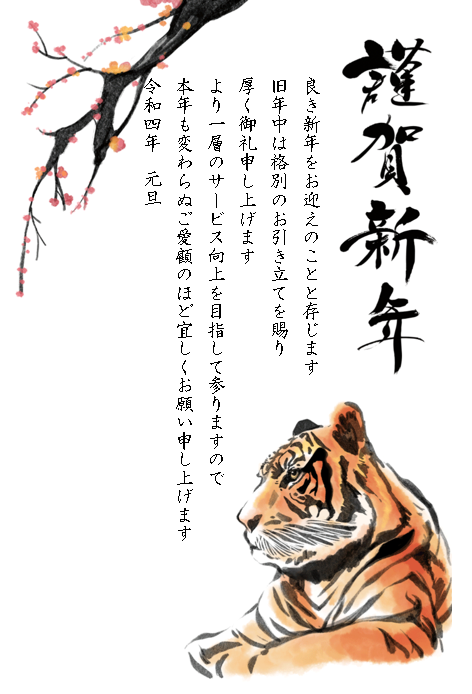 謹賀新年
良き新年をお迎えのことと存じます
旧年中は格別のお引き立てを賜り
厚く御礼申し上げます
より一層のサービス向上を目指して参りますので
本年も変わらぬご愛顧のほど宜しくお願い申し上げます
令和四年　元旦